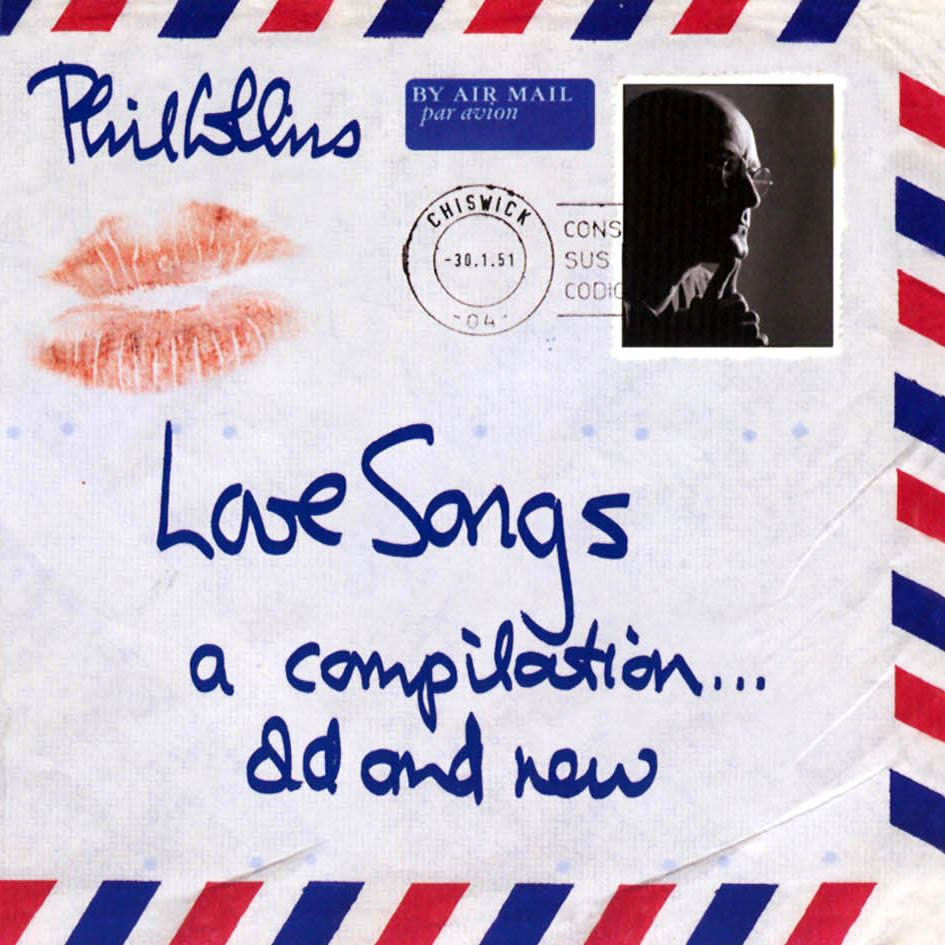 Phil Collins
BY AIR MAIL
par avion
CHISWICK
-30.1.51
-04-
CONS
SUS
CODIC
Love Songs
a compilation...
old and new